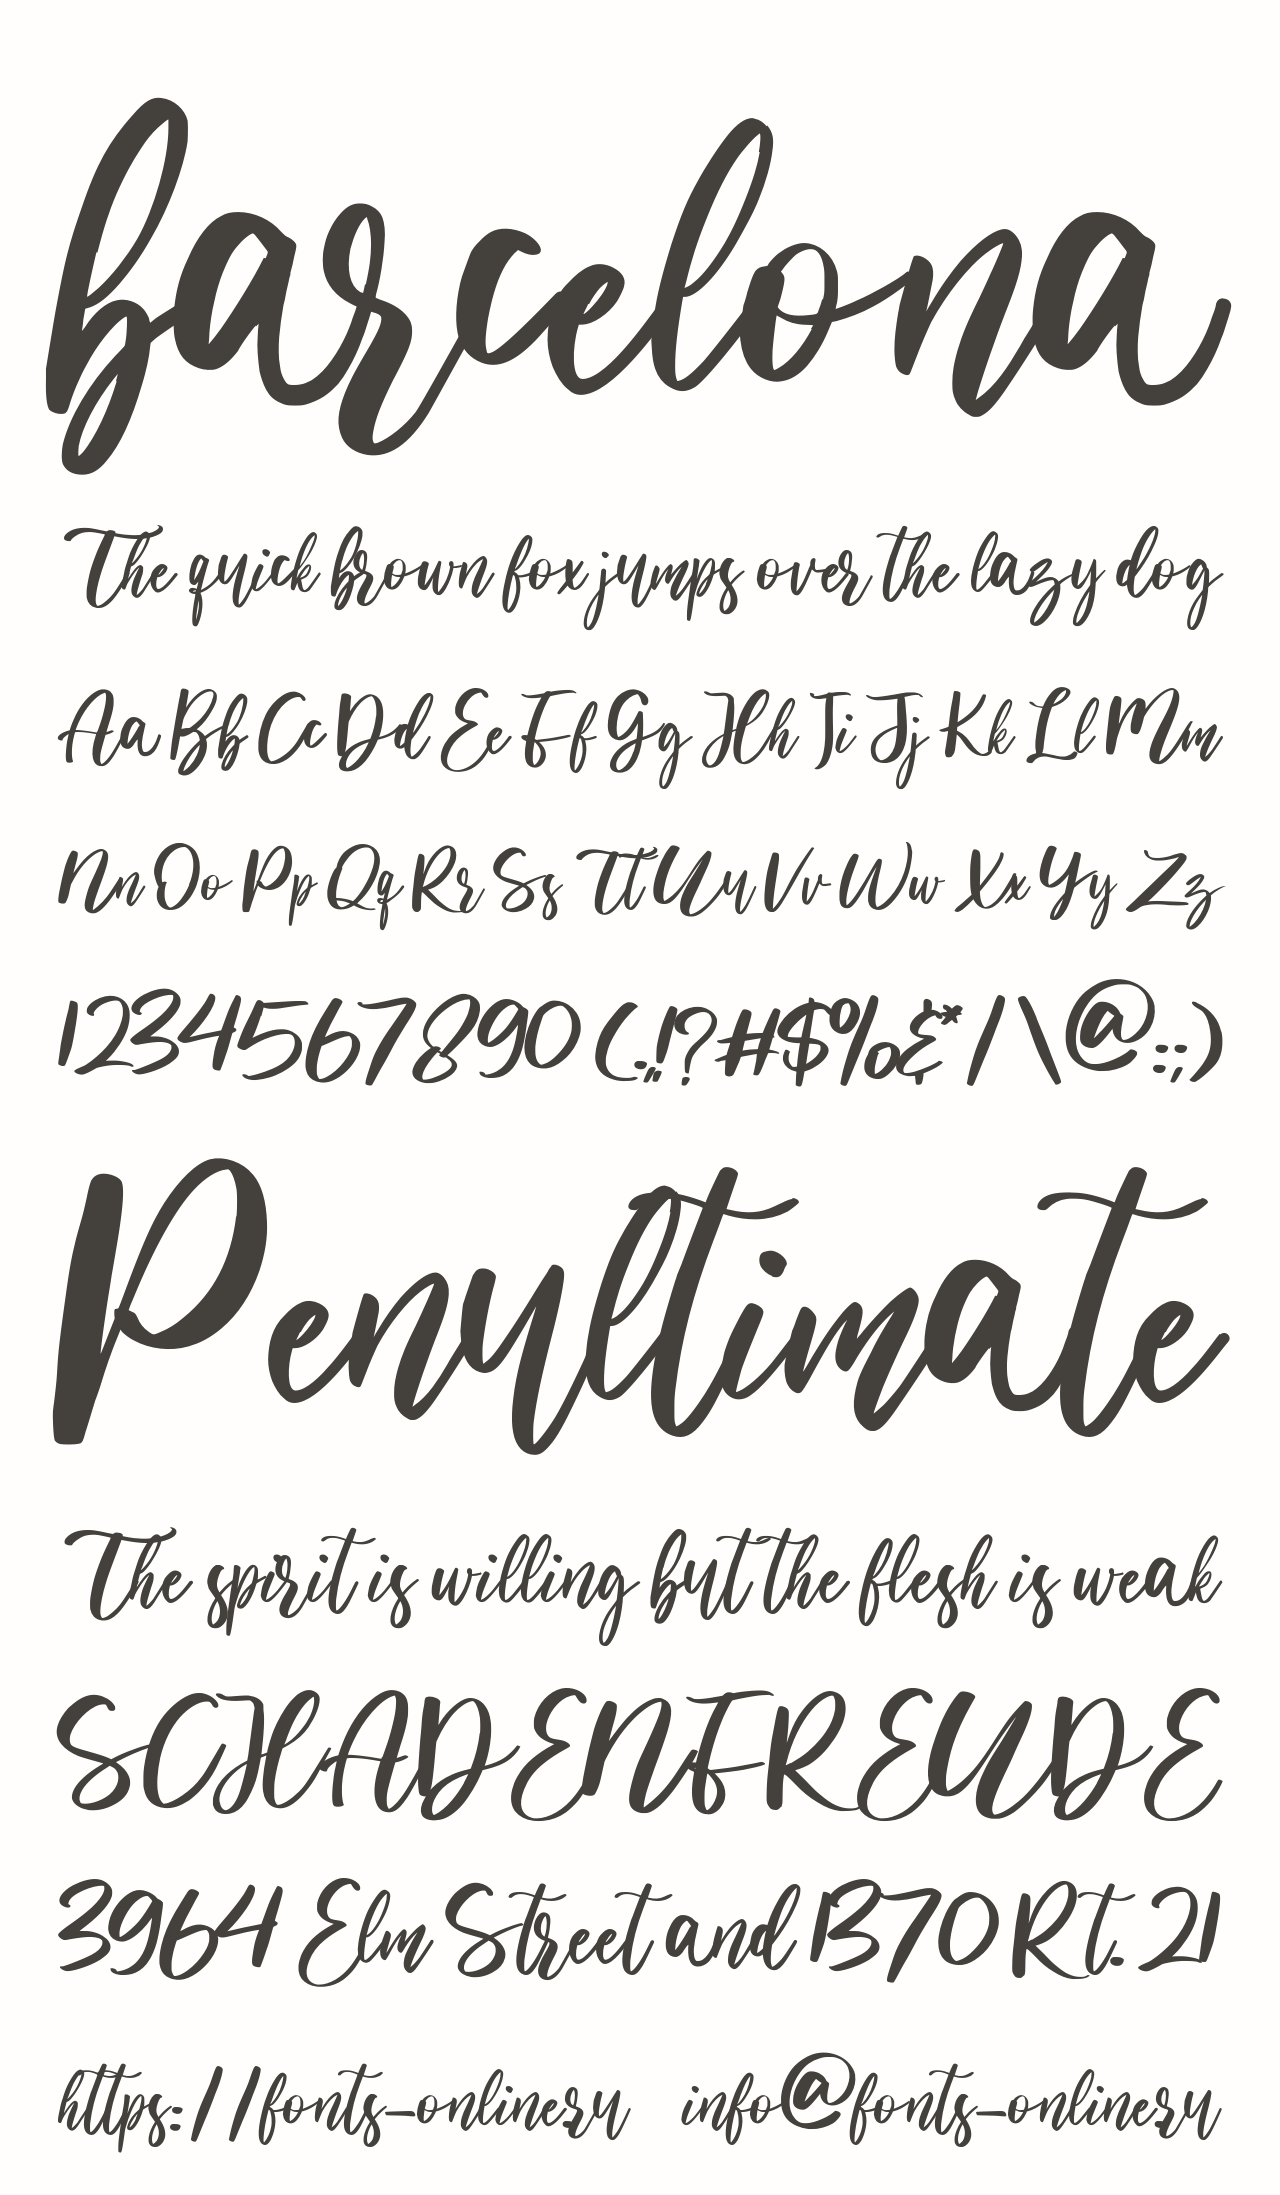 barcelona
The quick brown fox jumps over the lazy dog
Aa Bb Cc Dd Ee Ff Gg Hh Ii Jj Kk Ll Mm
Nn Oo Pp Qq Rr Ss Tt Uu Vv Ww Xx Yy Zz
1234567890 (.,!?#$%&*/\@:;)
Penultimate
The spirit is willing but the flesh is weak
SCHADENFREUDE
3964 Elm Street and 1370 Rt. 21
https://fonts-onlineru info@fonts-onlineru